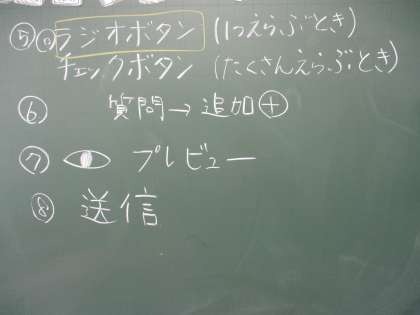 ⑤◎ラジオボタン(1つえらぶとき)
チェックボタン(たくさんえらぶとき)
⑥ 質問→追加⊕
⑦ プレビュー
⑧ 送信